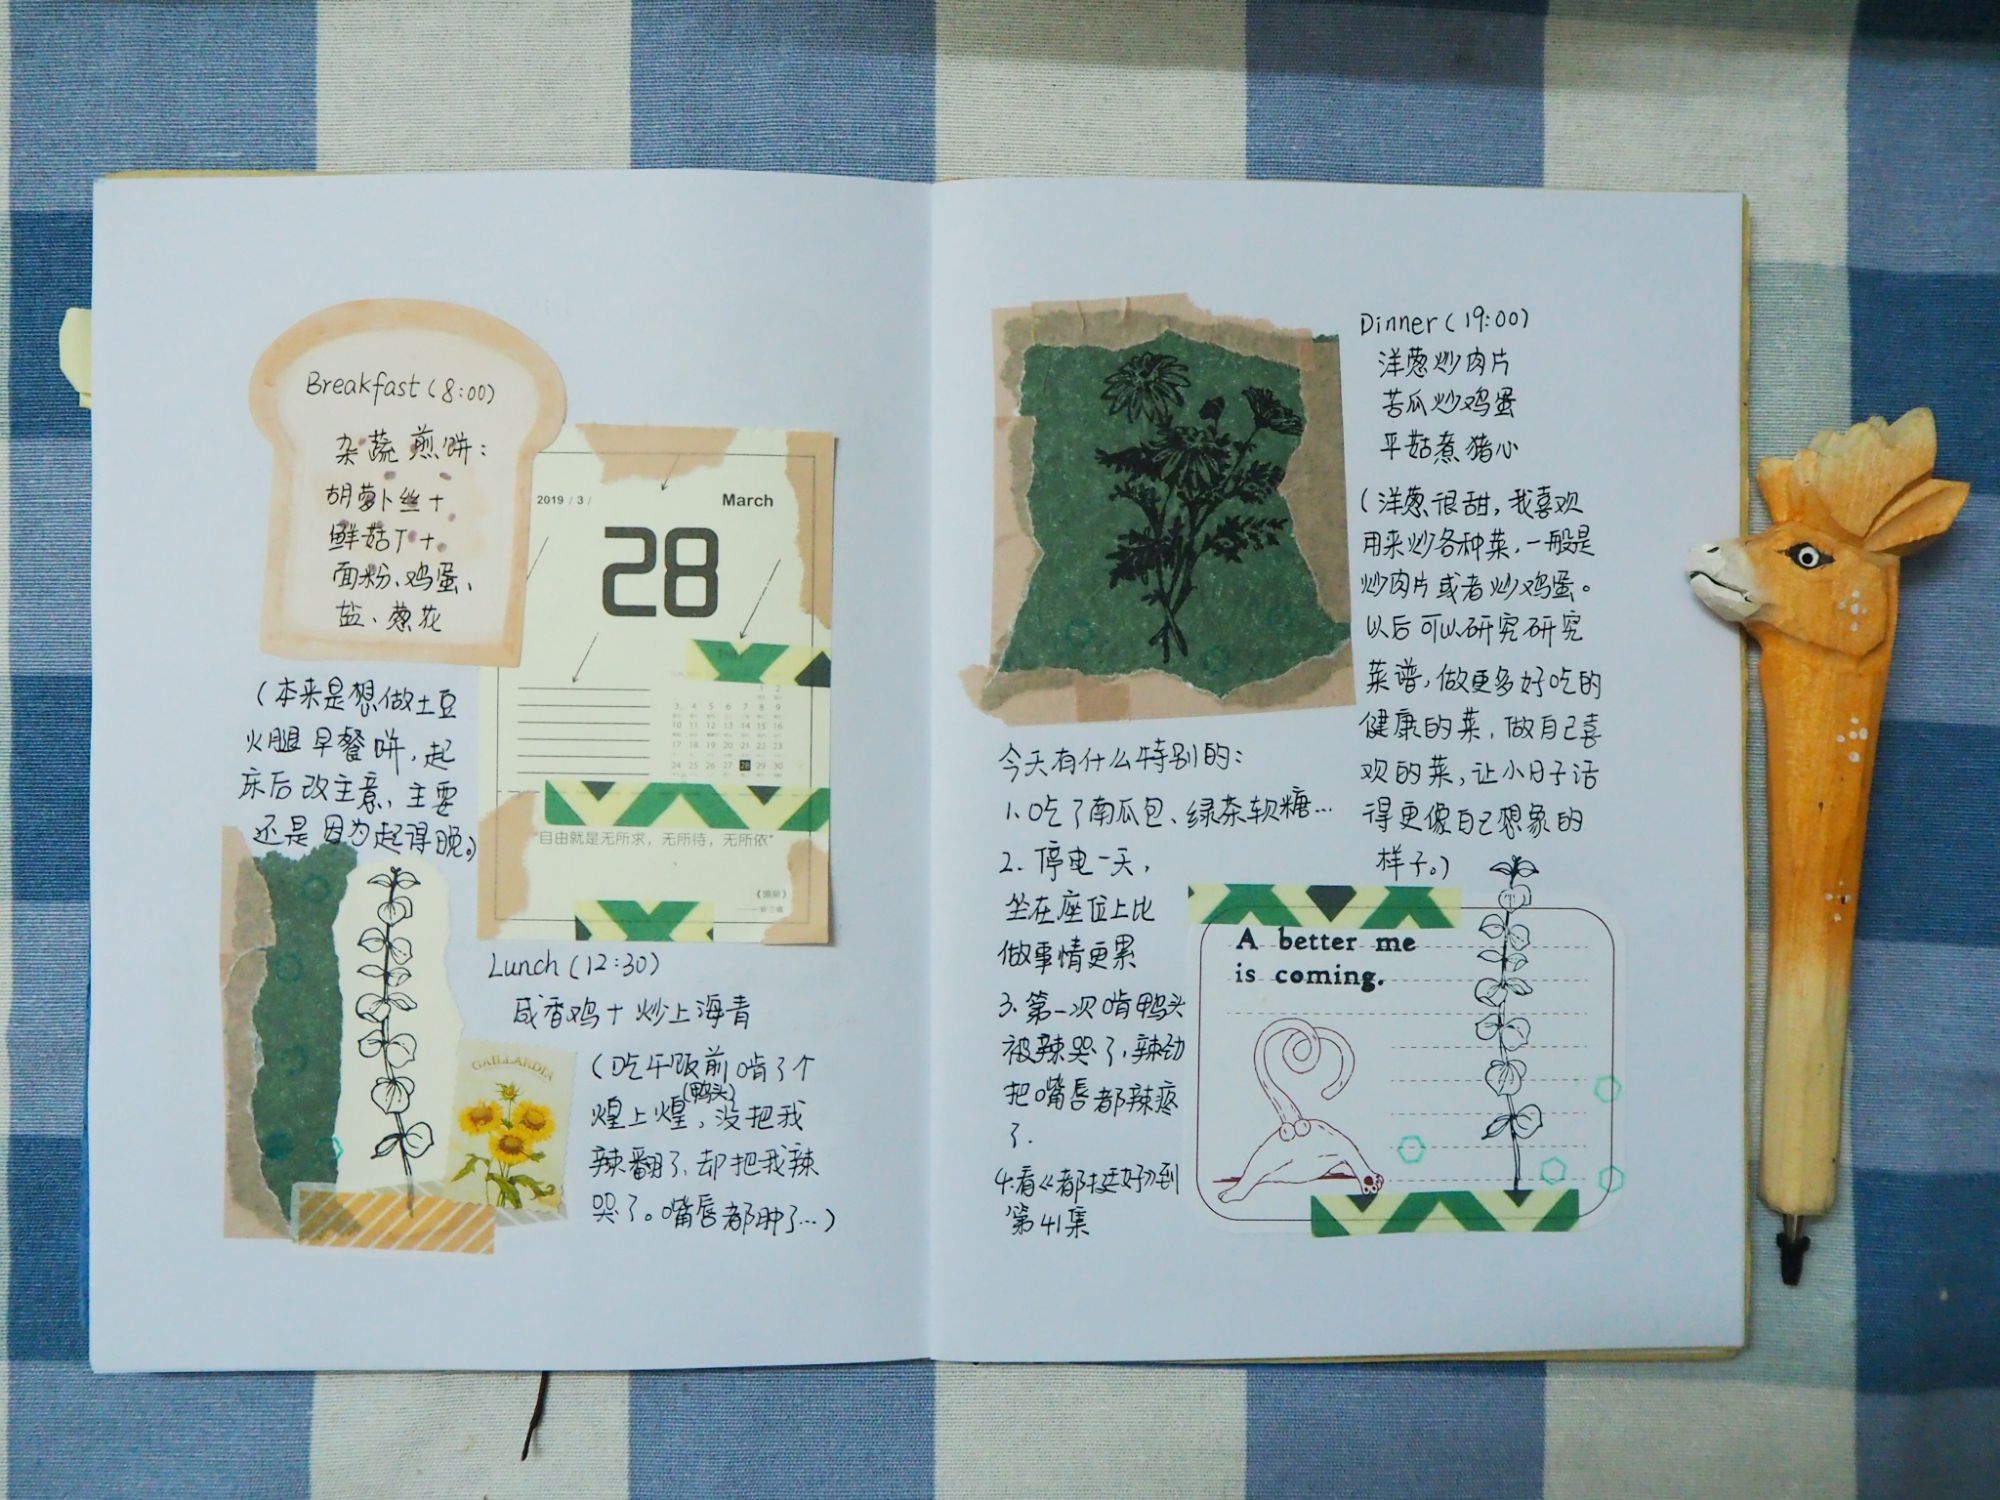 Breakfast(8:00)
杂蔬煎饼:
胡萝卜丝+
鲜菇丁+
面粉、鸡蛋、
盐、葱花
(本来是想做土豆
火腿早餐饼,起
床后改主意,主要
还是因为起得晚。)
2019 / 3 /
March
28
1 2
3 4 5 6 7 8 9
10 11 12 13 14 15 16
17 18 19 20 21 22 23
24 25 26 27 28 29 30
"自由就是无所求,无所待,无所依"
GAILLARDIA
Lunch(12:30)
咸香鸡+炒上海青
(吃午饭前啃了个
煌上煌(鸭头),没把我
辣翻了,却把我辣
哭了。嘴唇都肿了…)
Dinner(19:00)
洋葱炒肉片
苦瓜炒鸡蛋
平菇煮猪心
(洋葱很甜,我喜欢
用来炒各种菜,一般是
炒肉片或者炒鸡蛋。
以后可以研究研究
菜谱,做更多好吃的
健康的菜,做自己喜
欢的菜,让小日子活
得更像自己想象的
样子。)
今天有什么特别的:
1.吃了南瓜包、绿茶软糖…
2.停电一天,
坐在座位上比
做事情更累
3.第一次啃鸭头
被辣哭了,辣劲
把嘴唇都辣疼
了.
4.看《都挺好》到
第41集
A better me
is coming.